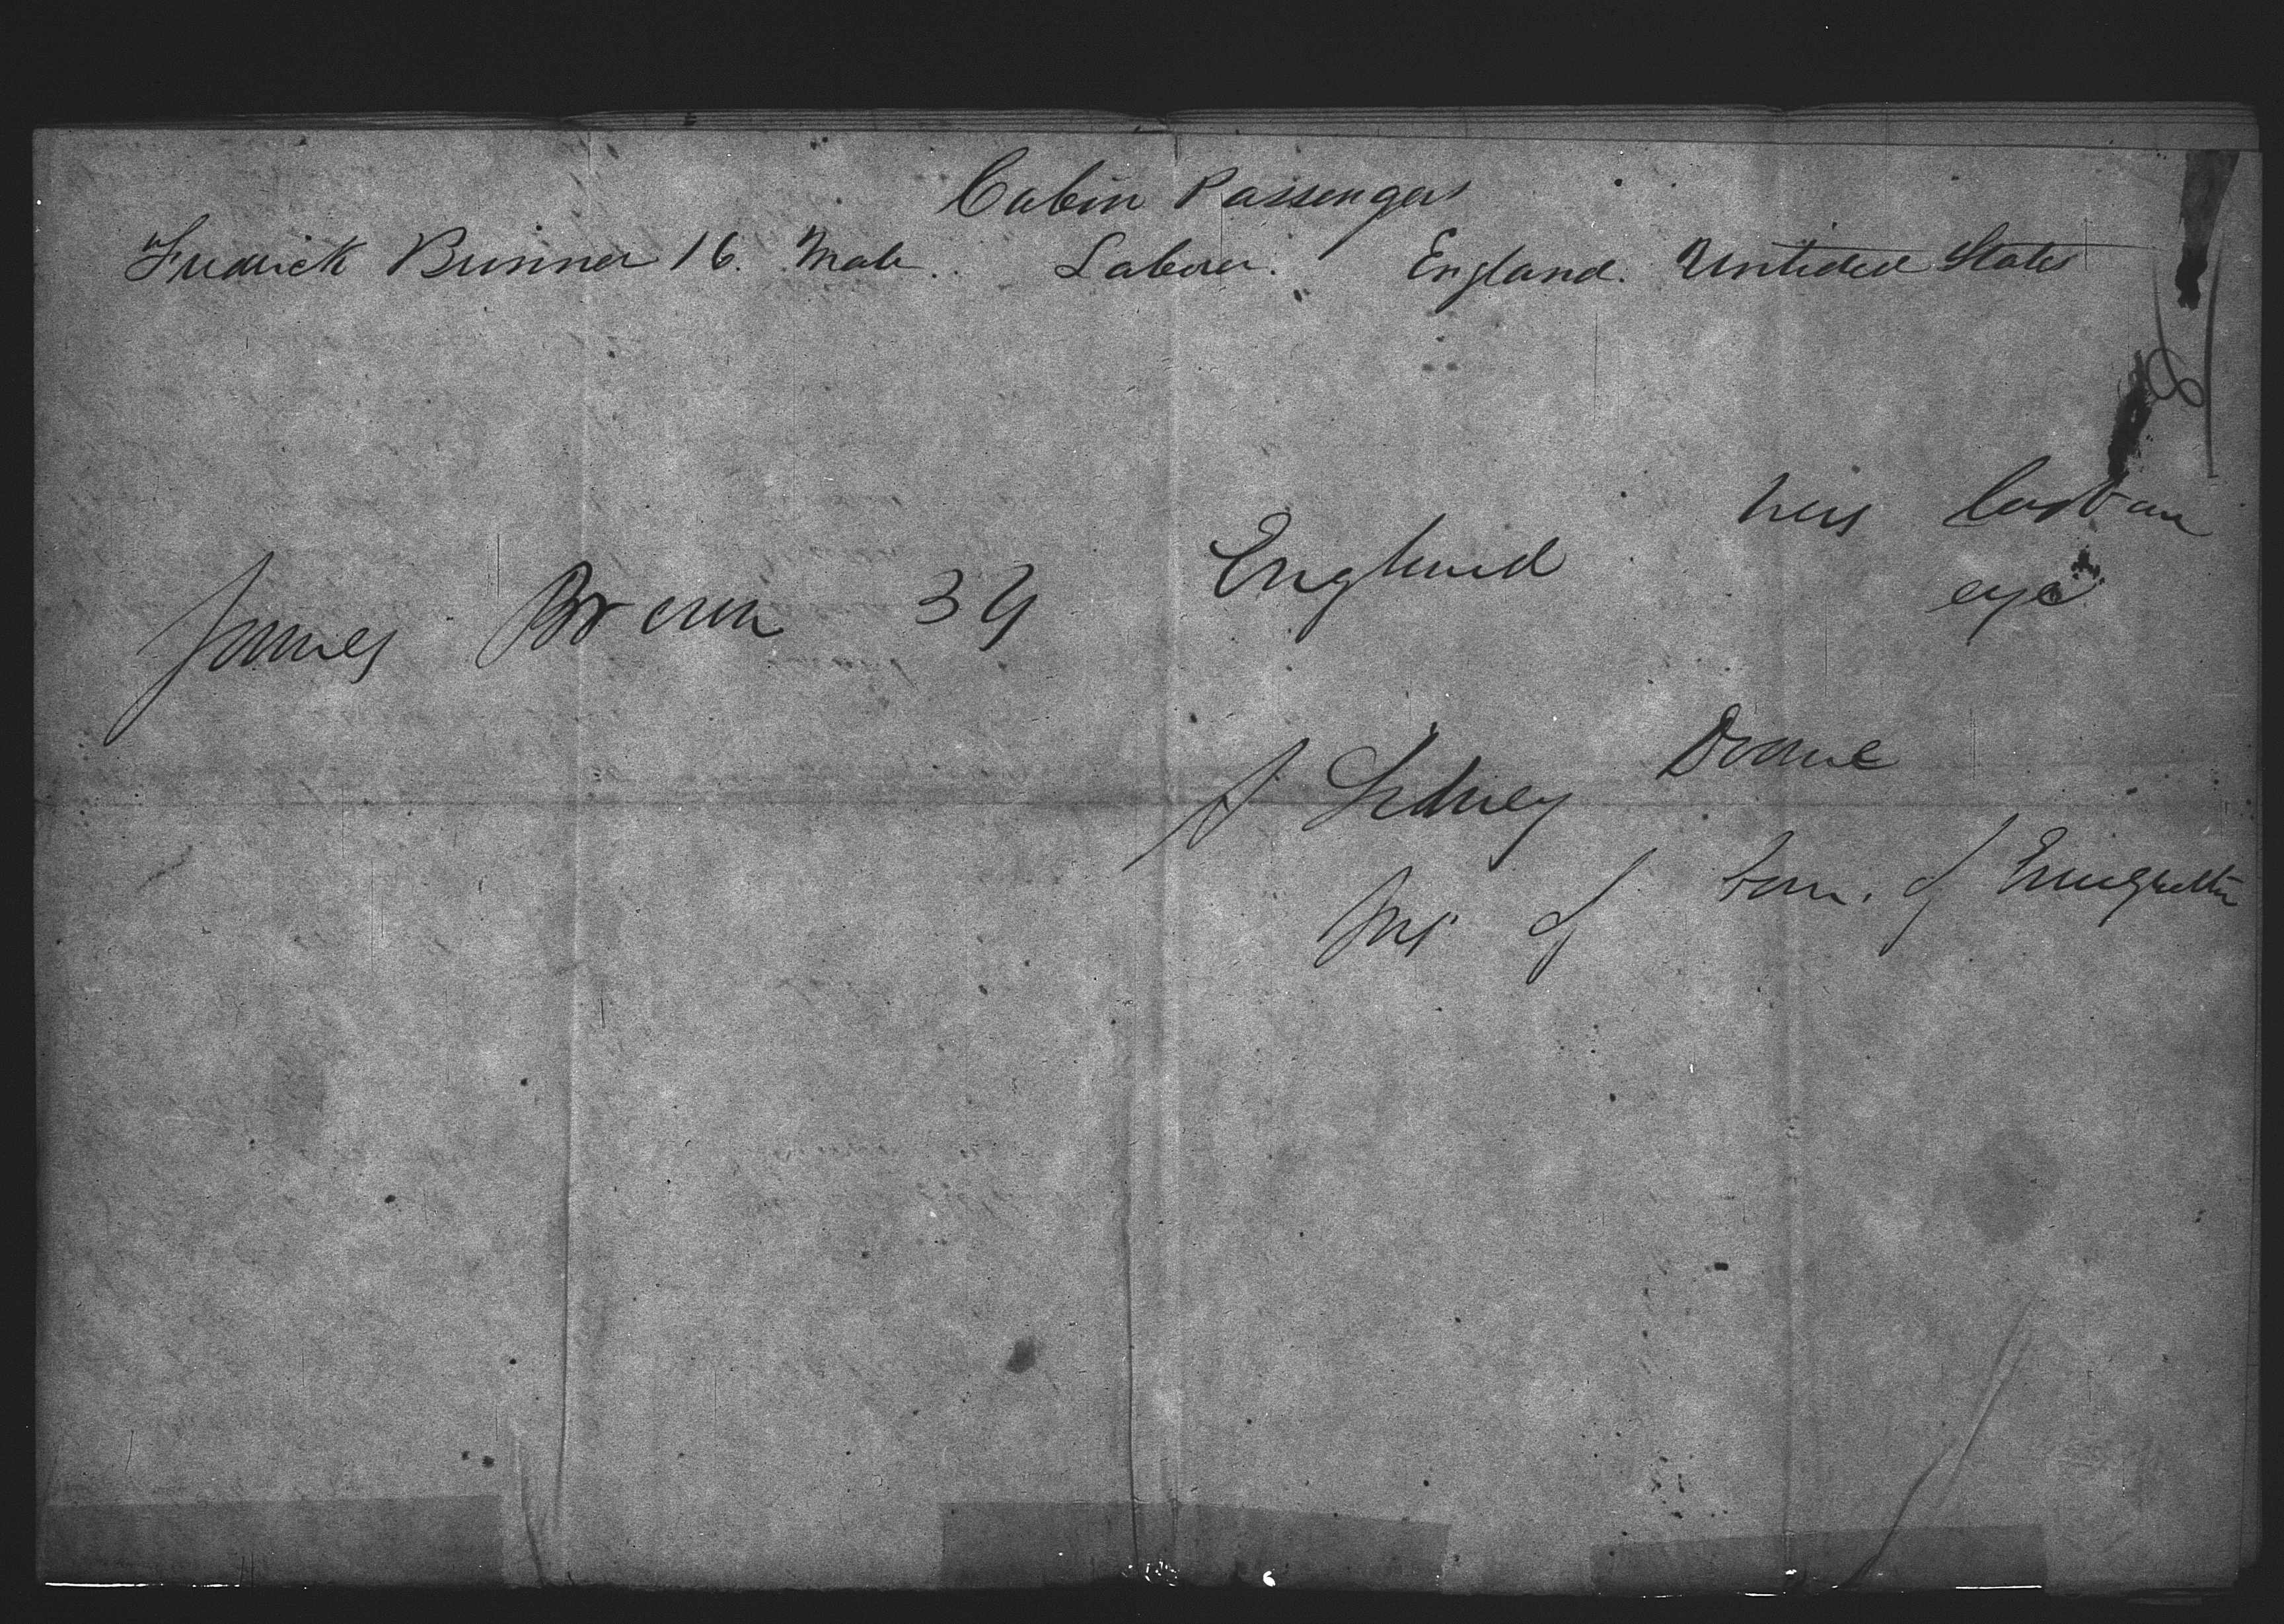 Cabin Passengers
Fredrick Brinner 16. Male. Laborer. England. Untided States
James Brown 39 England has lost an
eye
J Sidney Doane
of Com. of Emigration